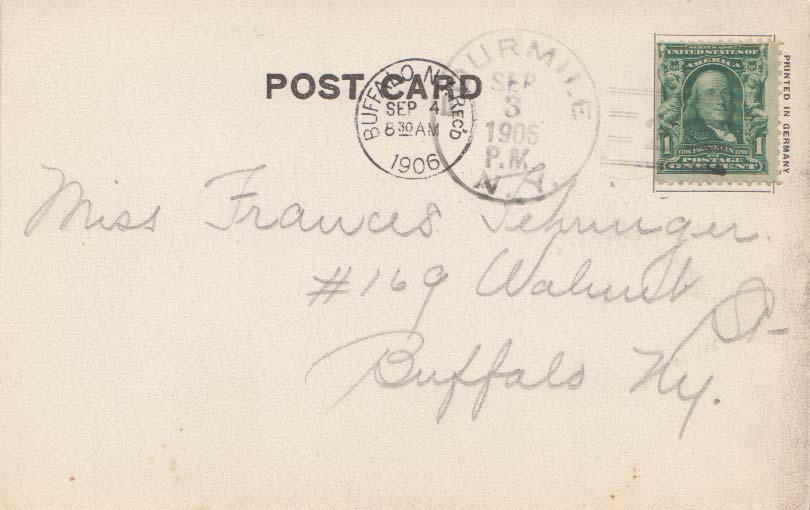 POST CARD
BUFFALO, N.Y. REC'D
SEP 4
8 30 AM
1906
FOURMILE
SEP
3
1906
P.M.
N.Y.
SERIES 1902
UNITED STATES OF
AMERICA
1 1
1706 FRANKLIN 1790
POSTAGE
ONE CENT
PRINTED IN GERMANY
Miss Frances Fehringer.
#169 Walnut
St-
Buffalo Ny.